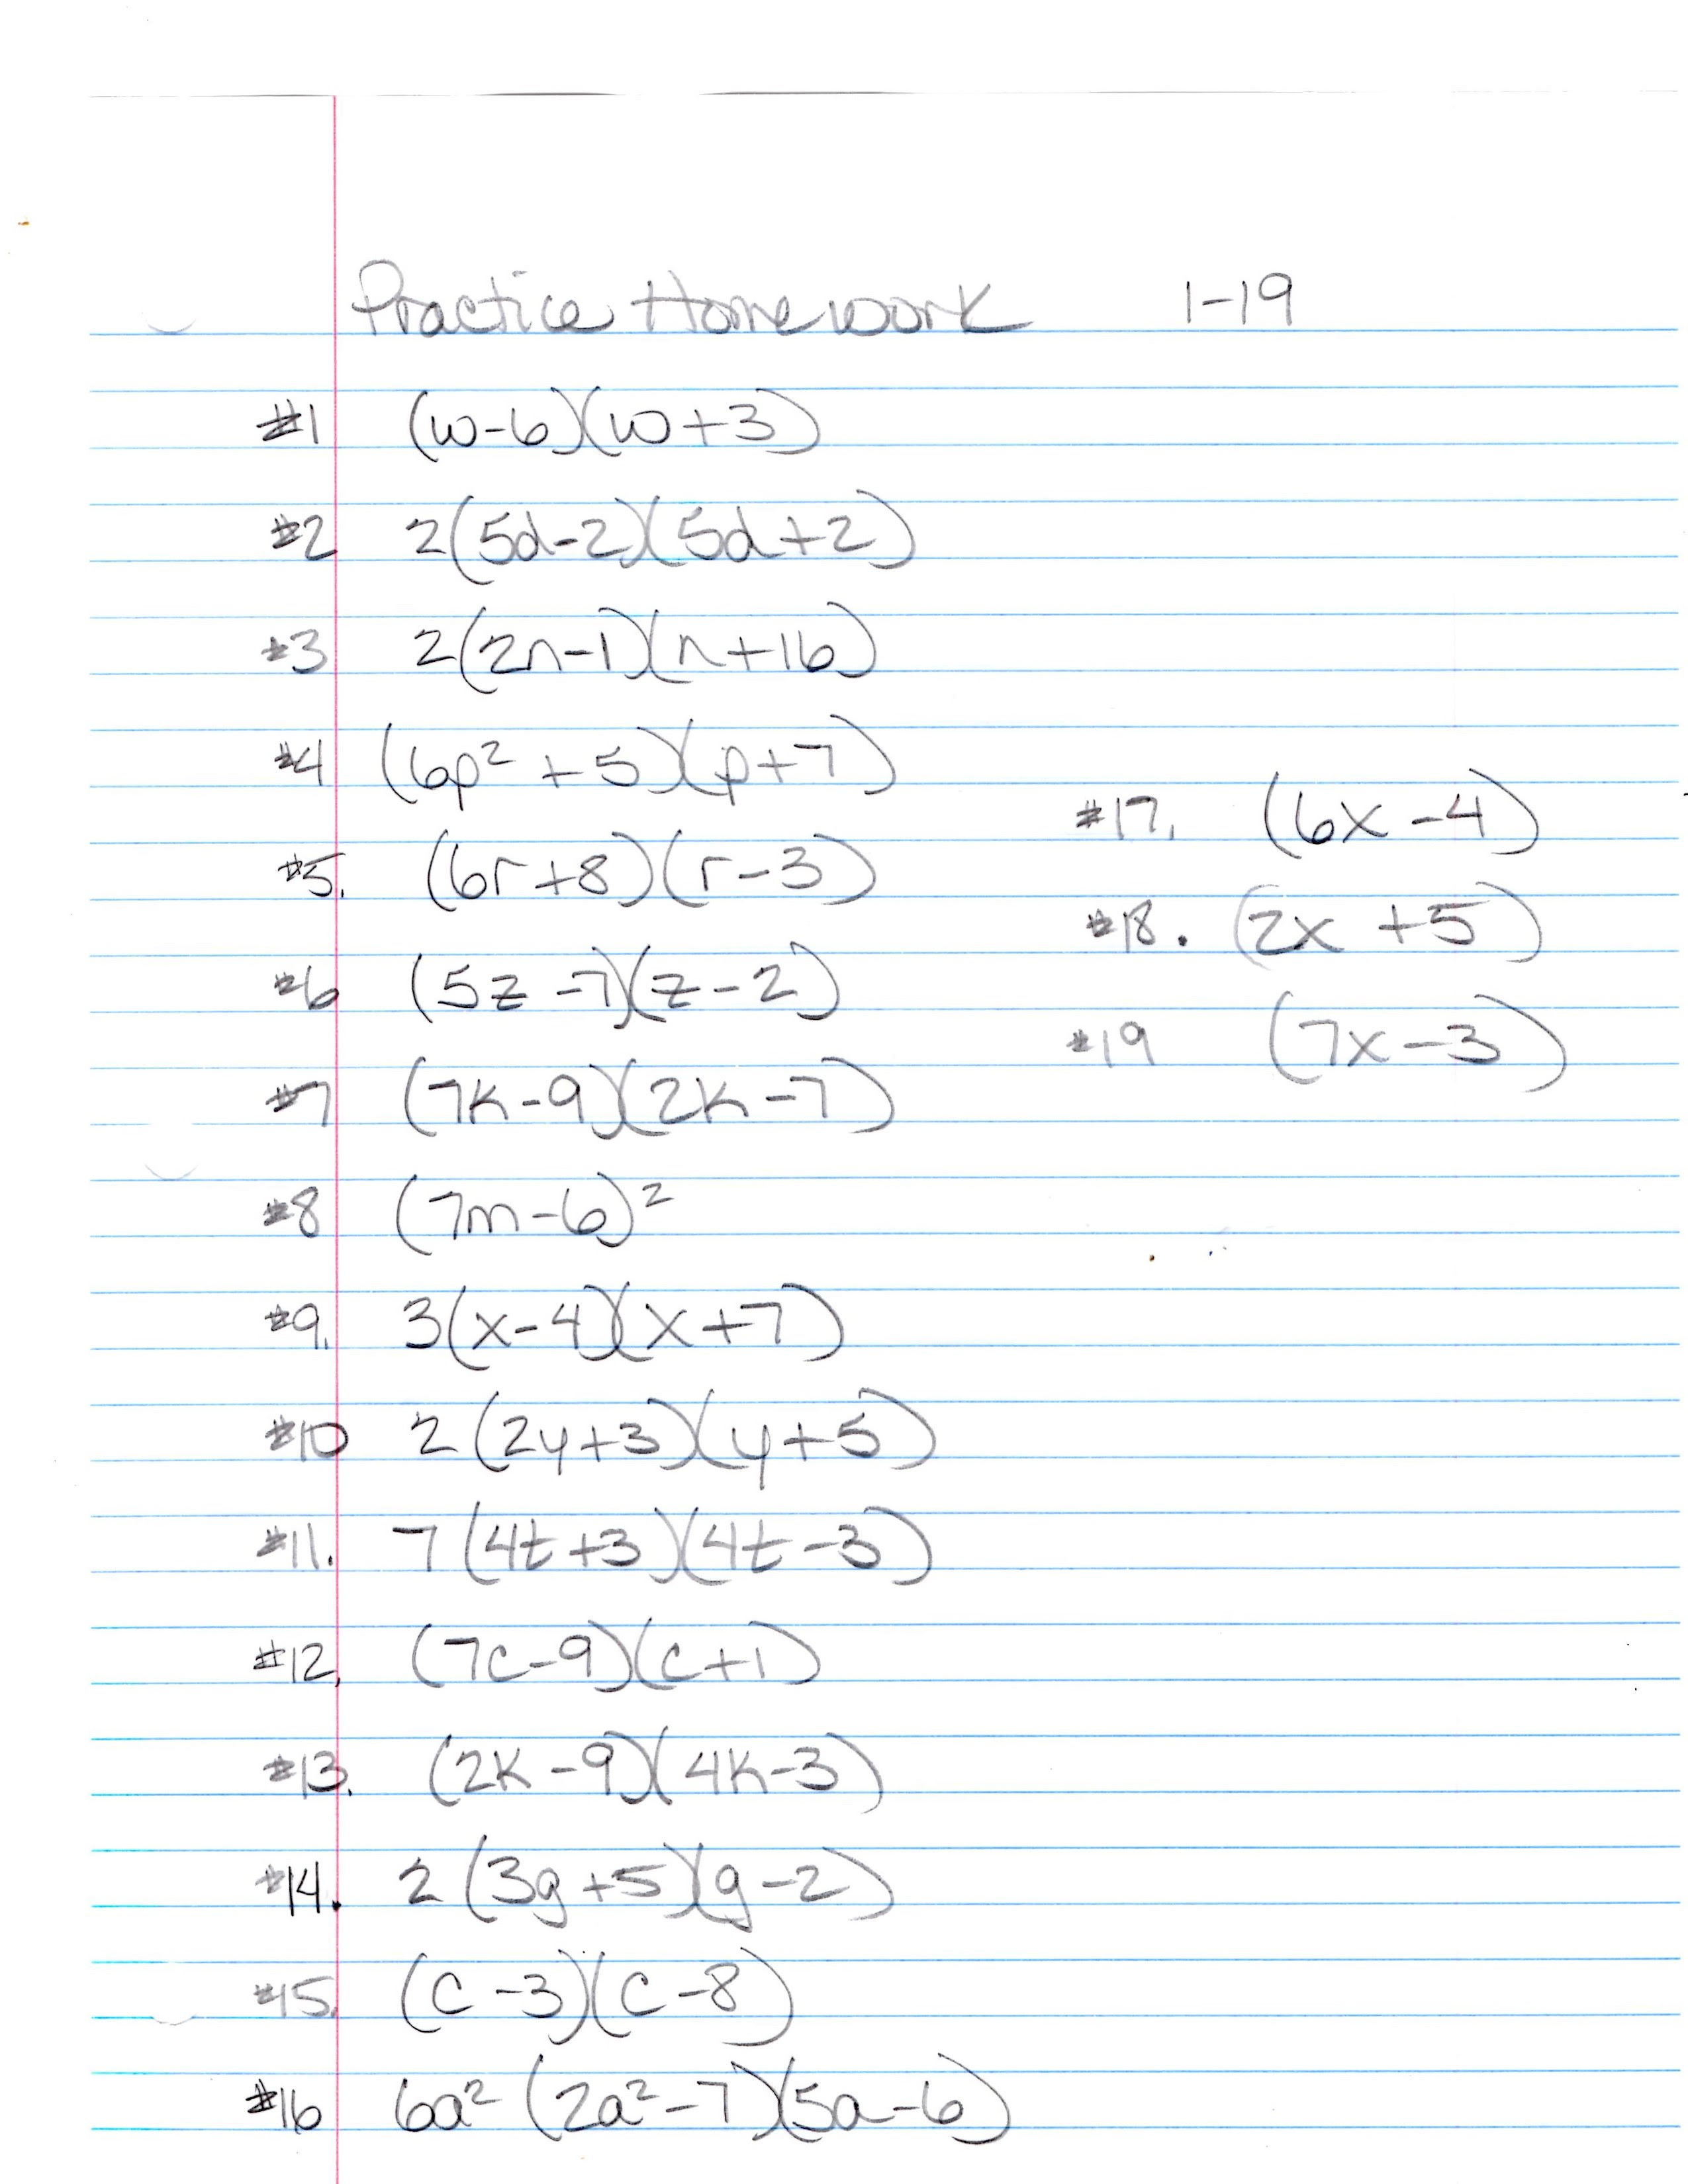 Practice Homework 1-19
#1 (w-6)(w+3)
#2 2(5d-2)(5d+2)
#3 2(2n-1)(n+16)
#4 (6p² +5)(p+7)
#5. (6r+8)(r-3)
#6 (5z-7)(z-2)
#7 (7k-9)(2k-7)
#8 (7m-6)²
#9. 3(x-4)(x+7)
#10 2(2y+3)(y+5)
#11. 7(4t+3)(4t-3)
#12. (7c-9)(c+1)
#13. (2k-9)(4k-3)
#14. 2(3g+5)(g-2)
#15. (c-3)(c-8)
#16 6a² (2a²-7)(5a-6)
#17. (6x-4)
#18. (2x+5)
#19 (7x-3)